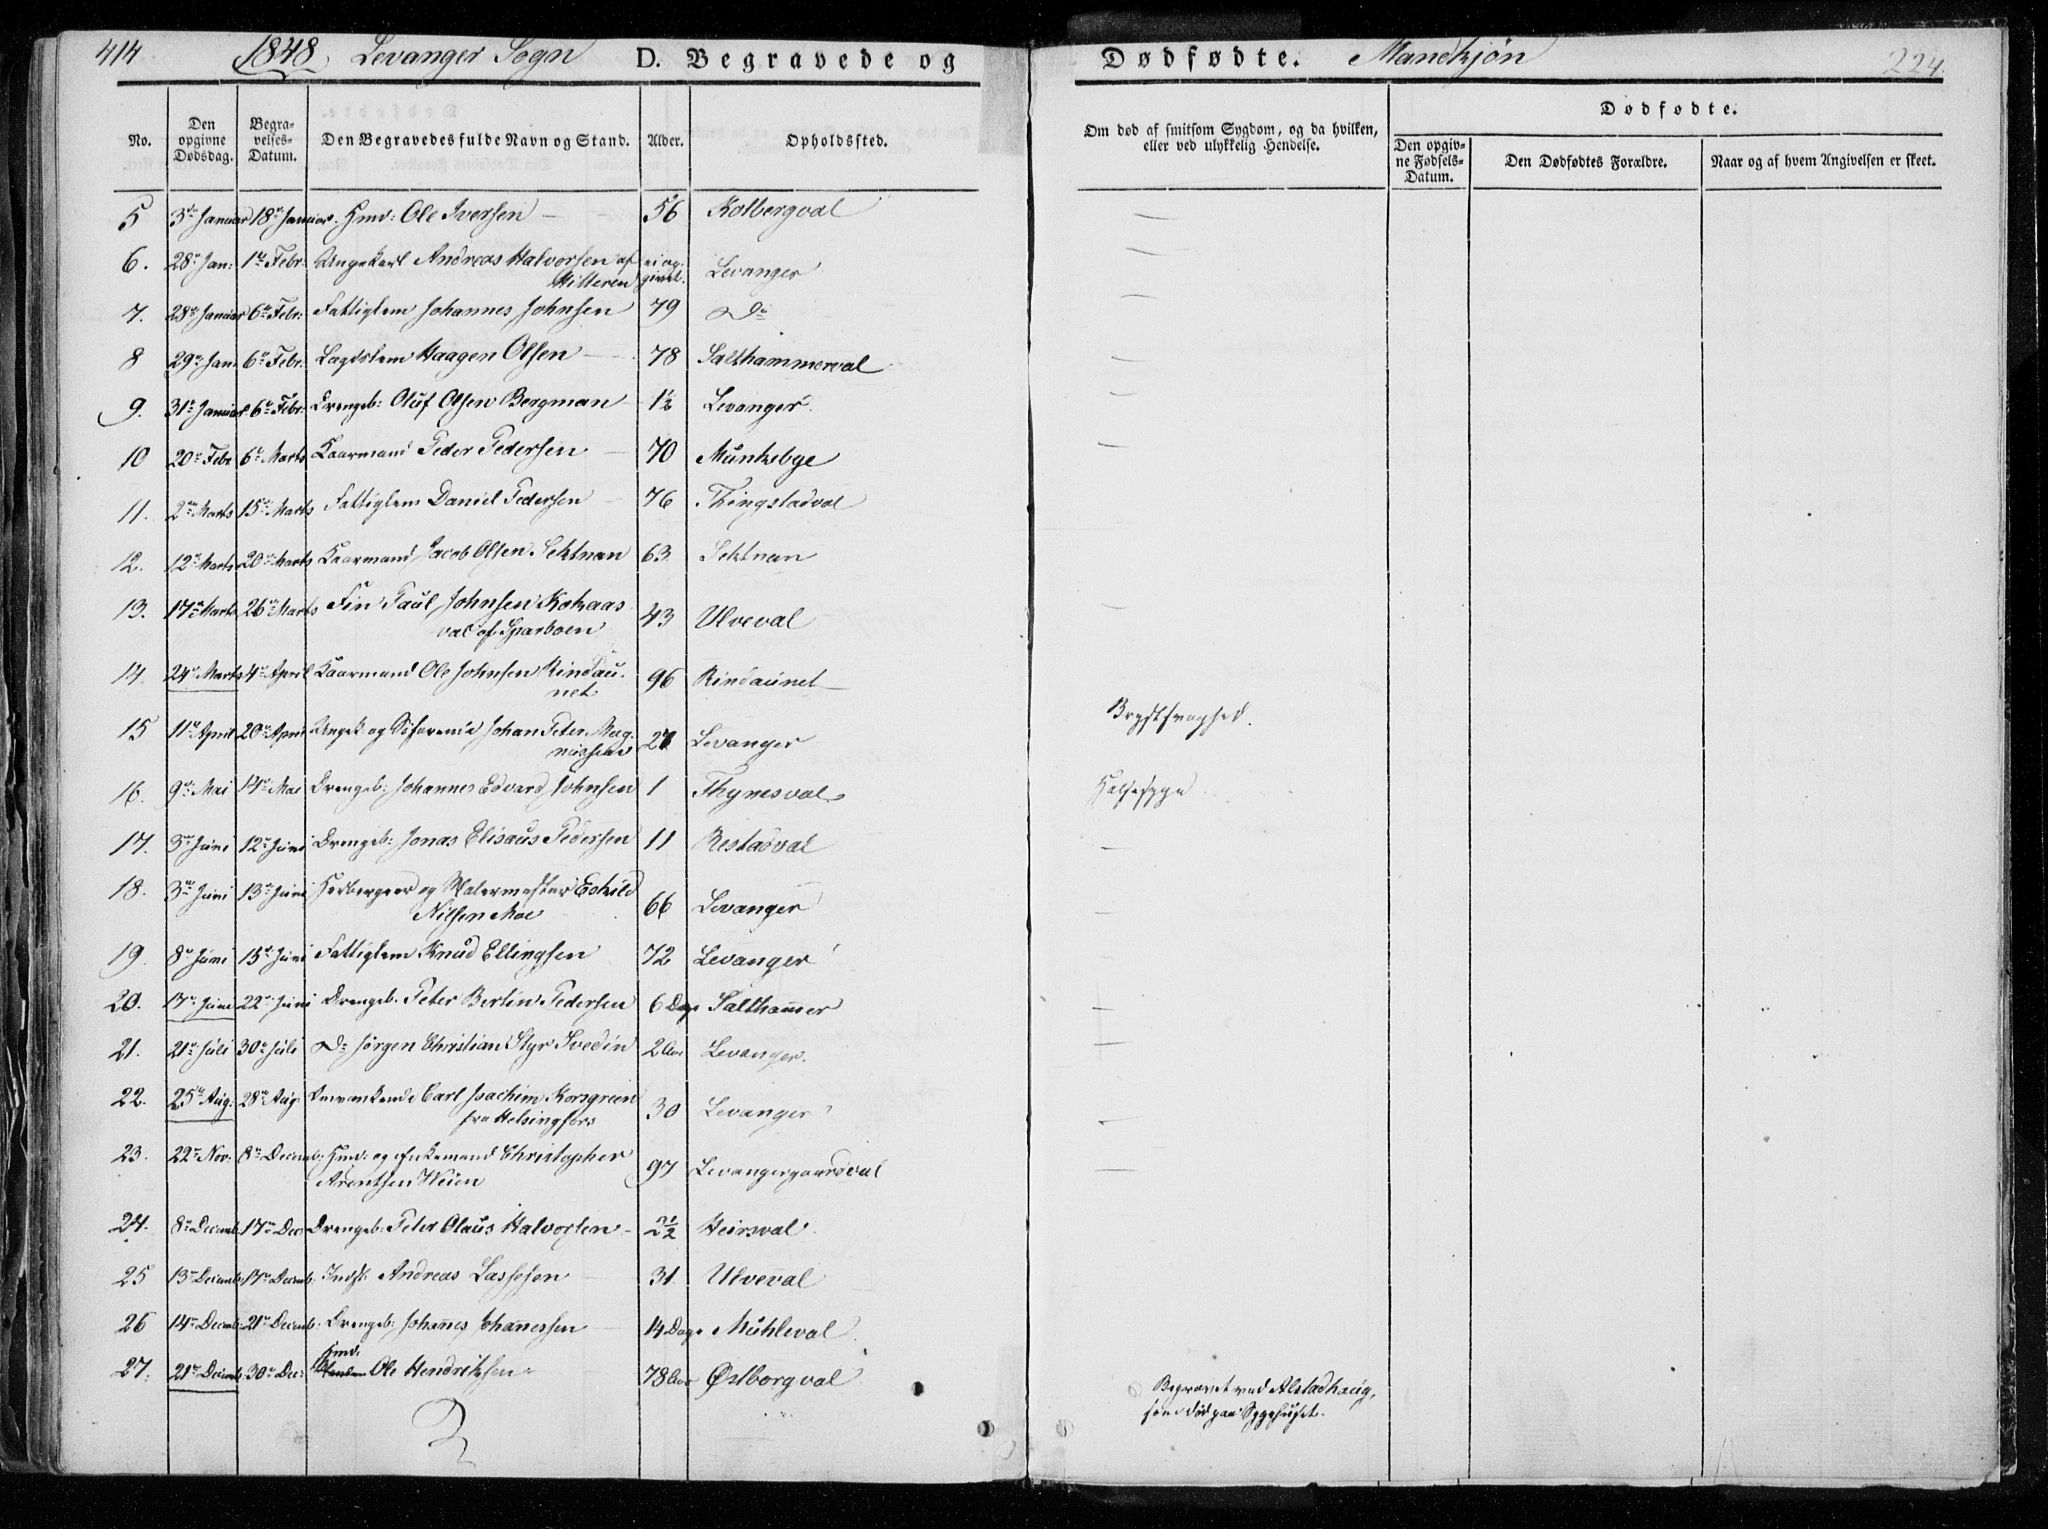 414 1848, Levanger Sogn D. Begravede og Dødfødte. Mandkjøn 224.
No. Den opgivne Dødsdag. Begravelses-Datum. Den Begravedes fulde Navn og Stand. Alder. Opholdssted. Om død af smitsom Sygdom, og da hvilken, eller ved ulykkelig Hendelse. Dødfødte.
Den opgivne Fødsels-Datum. Den Dødfødtes Forældre. Naar og af hvem Angivelsen er skeet.
5 3die Januar 18de Januar. Hmd: Ole Iversen — 56 Kolbergval —
6. 28de Jan: 1te Febr: Ungekarl Andreas Halvorsen af Hitteren ei opgivet. Levanger —
7. 28de Januar 6te Febr: Fattiglem Johannes Johnsen 79 Do —
8 29de Jan: 6te Febr: Lægdslem Haagen Olsen — 78 Salthammerval —
9. 31te Januar 6te Febr: Drengeb: Oluf Olsen Bergman 1½ Levanger. —
10 20de Febr 6te Marts Kaarmand Peder Pedersen — 70 Munkebye —
11. 2den Marts 15de Marts Fattiglem Daniel Pedersen — 76 Thingstadval —
12. 12te Marts 20de Marts Kaarmand Jacob Olsen Sektnan 63 Sektnan —
13. 17de Marts 26de Marts Fin Paul Johnsen Kokaas val af Sparboen 43 Ulveval —
14. 24de Marts 4de April Kaarmand Ole Johnsen Rindaunet 96 Rindaunet —
15 11te April 20de April Ungek. og Søfarende Johan Peter Magnussen 27 Levanger Brystsvaghed.
16. 9de Mai 14de Mai Drengeb: Johannes Edvard Johnsen 1 Thynesval Halssyge
17. 3die Juni 12te Juni Drengeb: Jonas Elisæus Pedersen 11 Restadval —
18. 3die Juni 13de Juni Herbergeer og Malermester Eskild Nilsen Moe 66 Levanger —
19. 8de Juni 15de Juni Fattiglem Knud Ellingsen 72 Levanger —
20. 17de Juni 22de Juni Drengeb. Peter Bertin Pedersen 6 Dage Salthammer —
21. 21de Juli 30te Juli Do Jørgen Christian Styr Svedin 2 Levanger. —
22. 25de Aug: 28de Aug. Omvankende Carl Joachim Korsgreen fra Helsingfors 30 Levanger —
23. 22de Nov: 8de Decemb. Hmd: og Enkemand Christopher Arentsen Weien 97 Levangergaardsval —
24. 8de Decemb: 17de Dec: Drengeb: Peter Olaus Halvorsen — 2½ Heirsval.
25 13de Decemb: 17de Decemb. Indst: Andreas Lassesen — 31 Ulveval
26 14de Decemb: 21de Decemb: Drengeb: Johannes Johanessen — 14 Dage Mühleval
27. 21de Decemb: 30te Dec: Hmd. Ole Hendriksen 78 Østborgval Begravet ved Alstadhaug, som død paa Sygehuset.